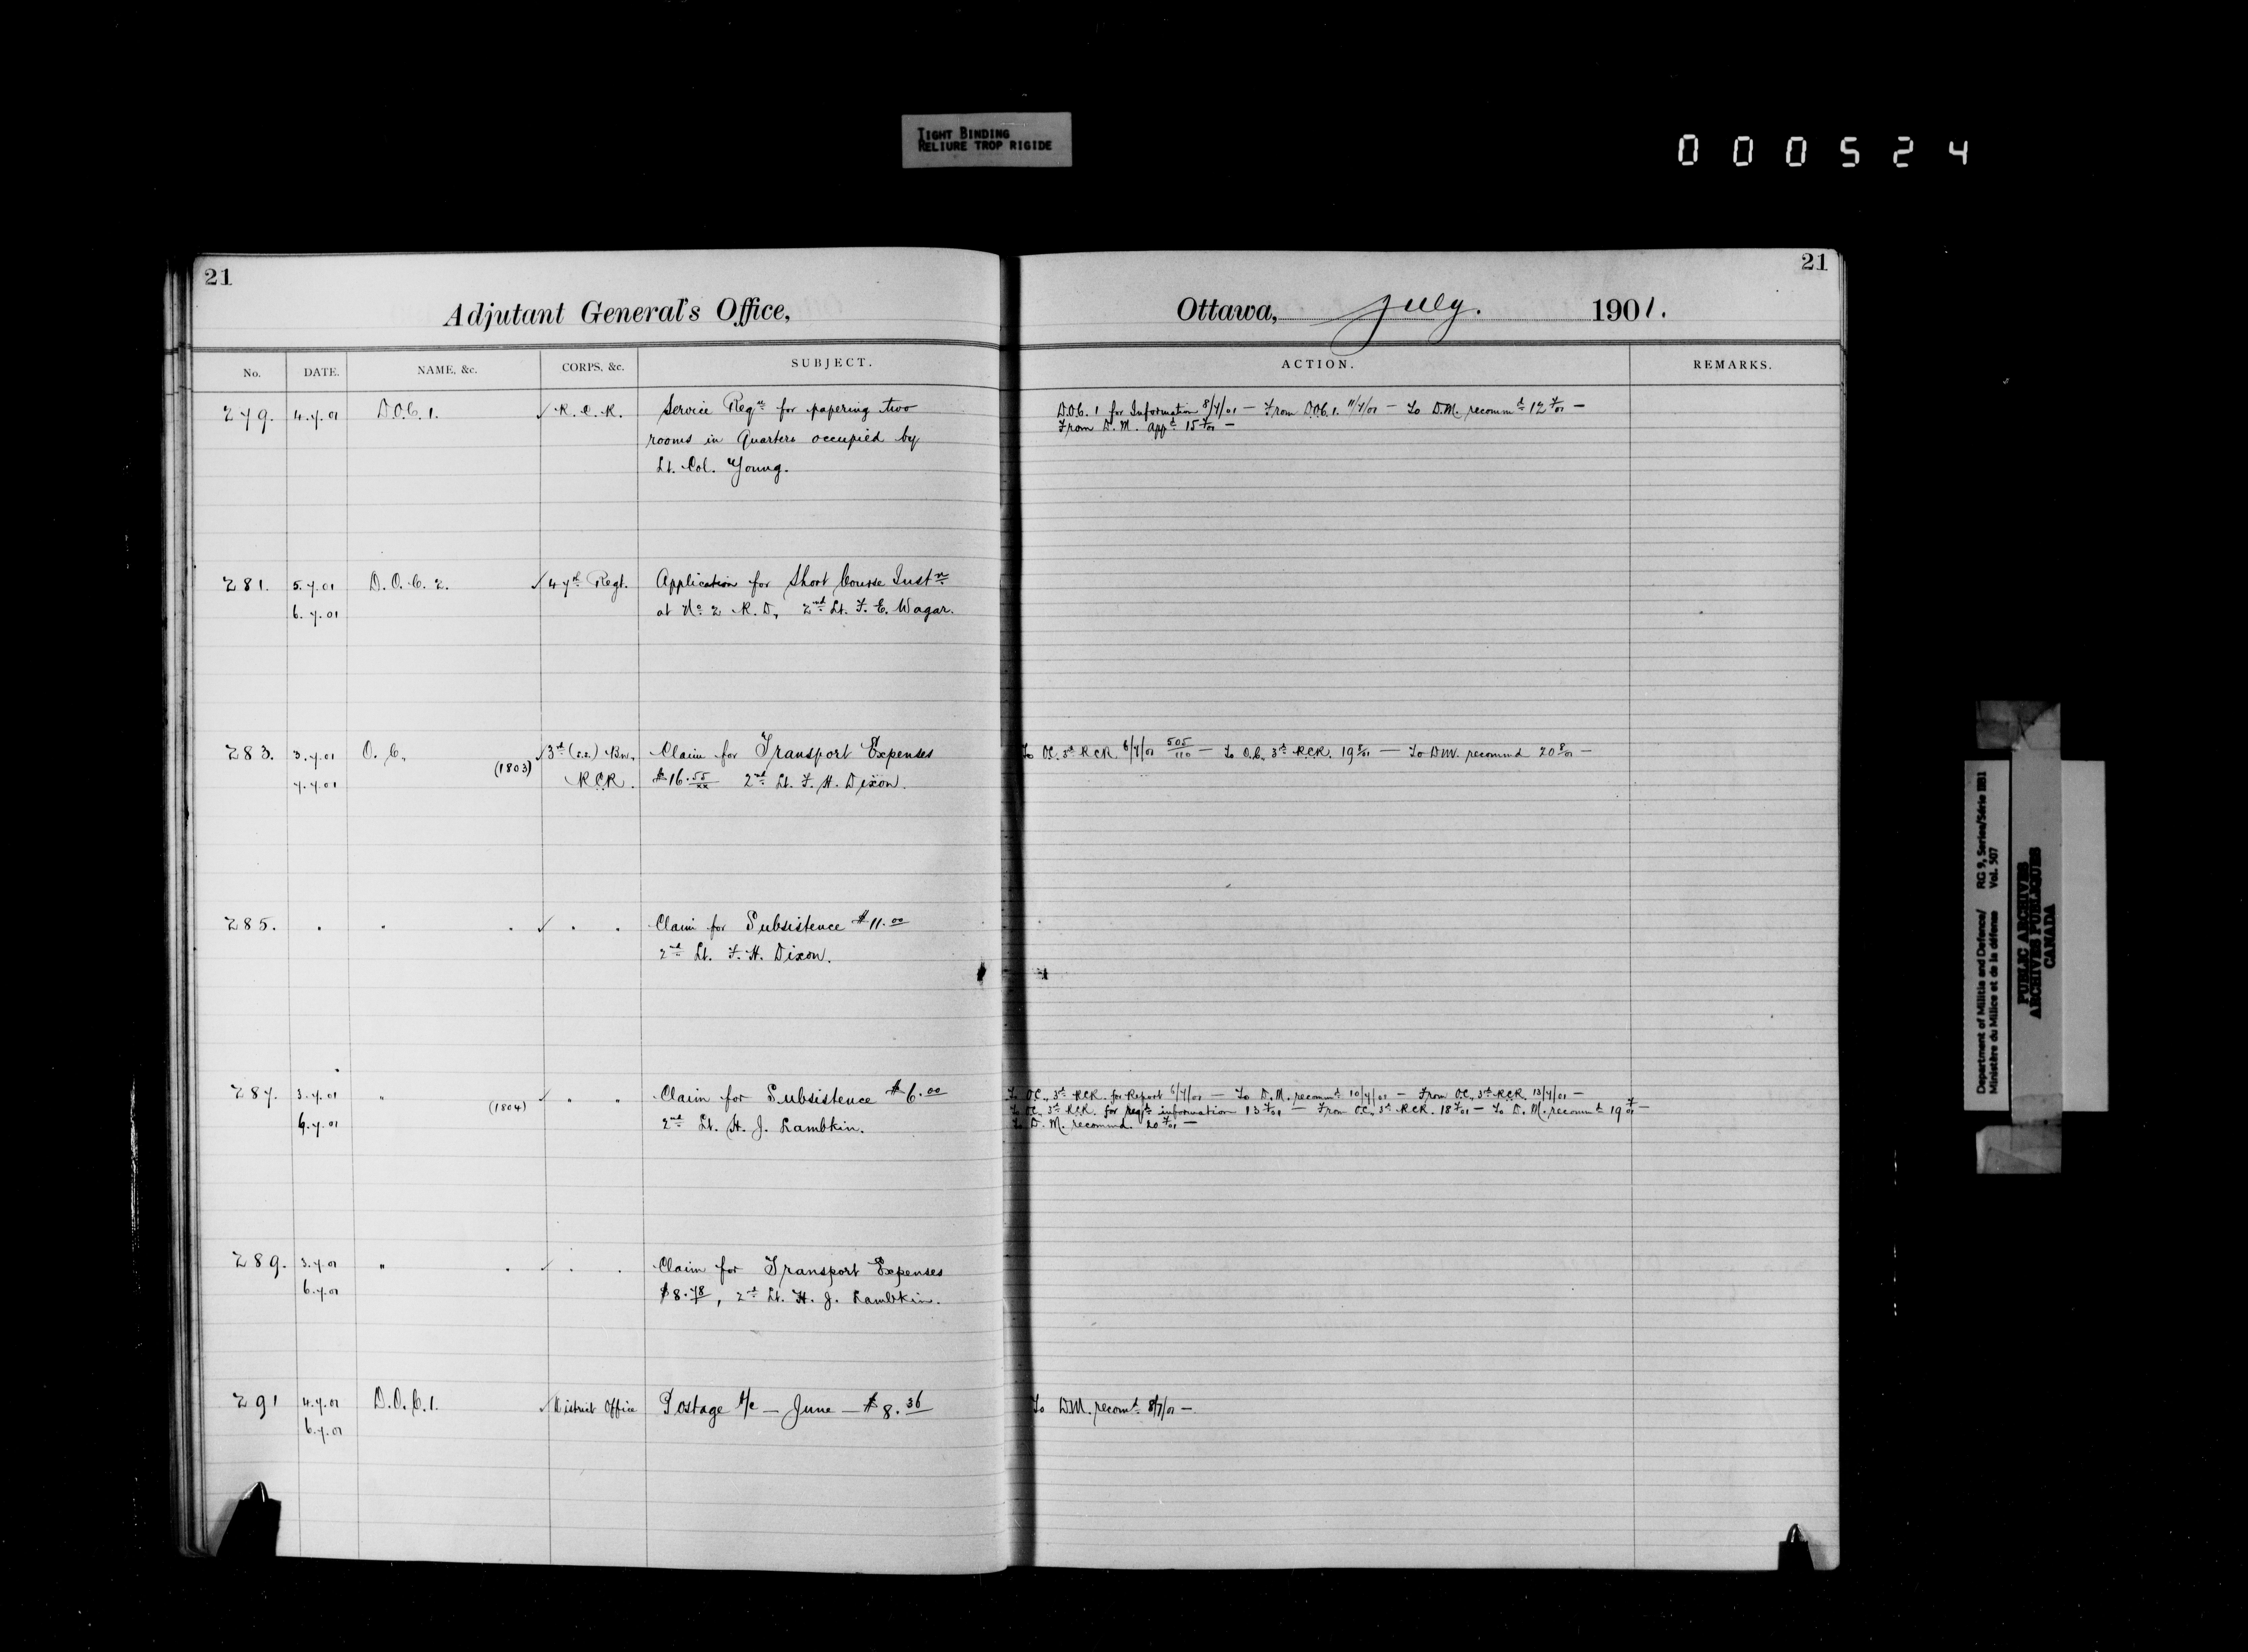 TIGHT BINDING
RELIURE TROP RIGIDE
000524
21
Adjutant General's Office,
No. DATE. NAME, &c. CORPS, &c. SUBJECT.
279. 4.7.01 D.O.C. 1. ✓ R. C. R. Service Reqn for papering two
rooms in Quarters occupied by
Lt. Col. Young.
281. 5.7.01 D.O.C. 2. ✓ 47th Regt. Application for Short Course Instn
6.7.01 at No 2 R. D, 2nd Lt. F. E. Wagar.
283. 3.7.01 O. C. (1803) ✓ 3rd (s.s.) Bn, Claim for Transport Expenses
7.7.01 RCR. $16.55/xx 2nd Lt. F. H. Dixon.
285. . . . ✓ . . Claim for Subsistence $11.00
2nd Lt. F. H. Dixon.
287. 3.7.01 " (1804) ✓ . . Claim for Subsistence $6.00
6.7.01 2nd Lt. H. J. Lambkin.
289. 3.7.01 " . ✓ . . Claim for Transport Expenses
6.7.01 $8.78, 2nd Lt. H. J. Lambkin.
291 4.7.01 D.O.C. 1. ✓ District Office Postage a/c — June — $8.36
6.7.01
21
Ottawa, July. 1901.
ACTION. REMARKS.
D.O.C. 1 for Information 8/7/01 — From D.O.C. 1. 11/7/01 — To D.M. recommd 12 7/01 —
From D. M. appd 15 7/01 —
To OC. 3rd RCR 6/7/01 505/110 — To O.C., 3rd RCR. 19 8/01 — To DM. recommd 20 8/01 —
To OC. 3rd RCR. for Report 6/7/01 — To D.M. recommd 10/7/01 — From OC, 3rd RCR 13/7/01 —
To OC, 3rd RCR. for regtl information 13 7/01 — From OC, 3rd RCR. 18 7/01 — To D. M. recommd 19 7/01 —
To D. M. recommd. 20 7/01 —
To DM. recomd 8/7/01 —
Department of Militia and Defence/ RG 9, Series/Série IIB1
Ministère du Milice et de la défense Vol. 507
PUBLIC ARCHIVES
ARCHIVES PUBLIQUES
CANADA